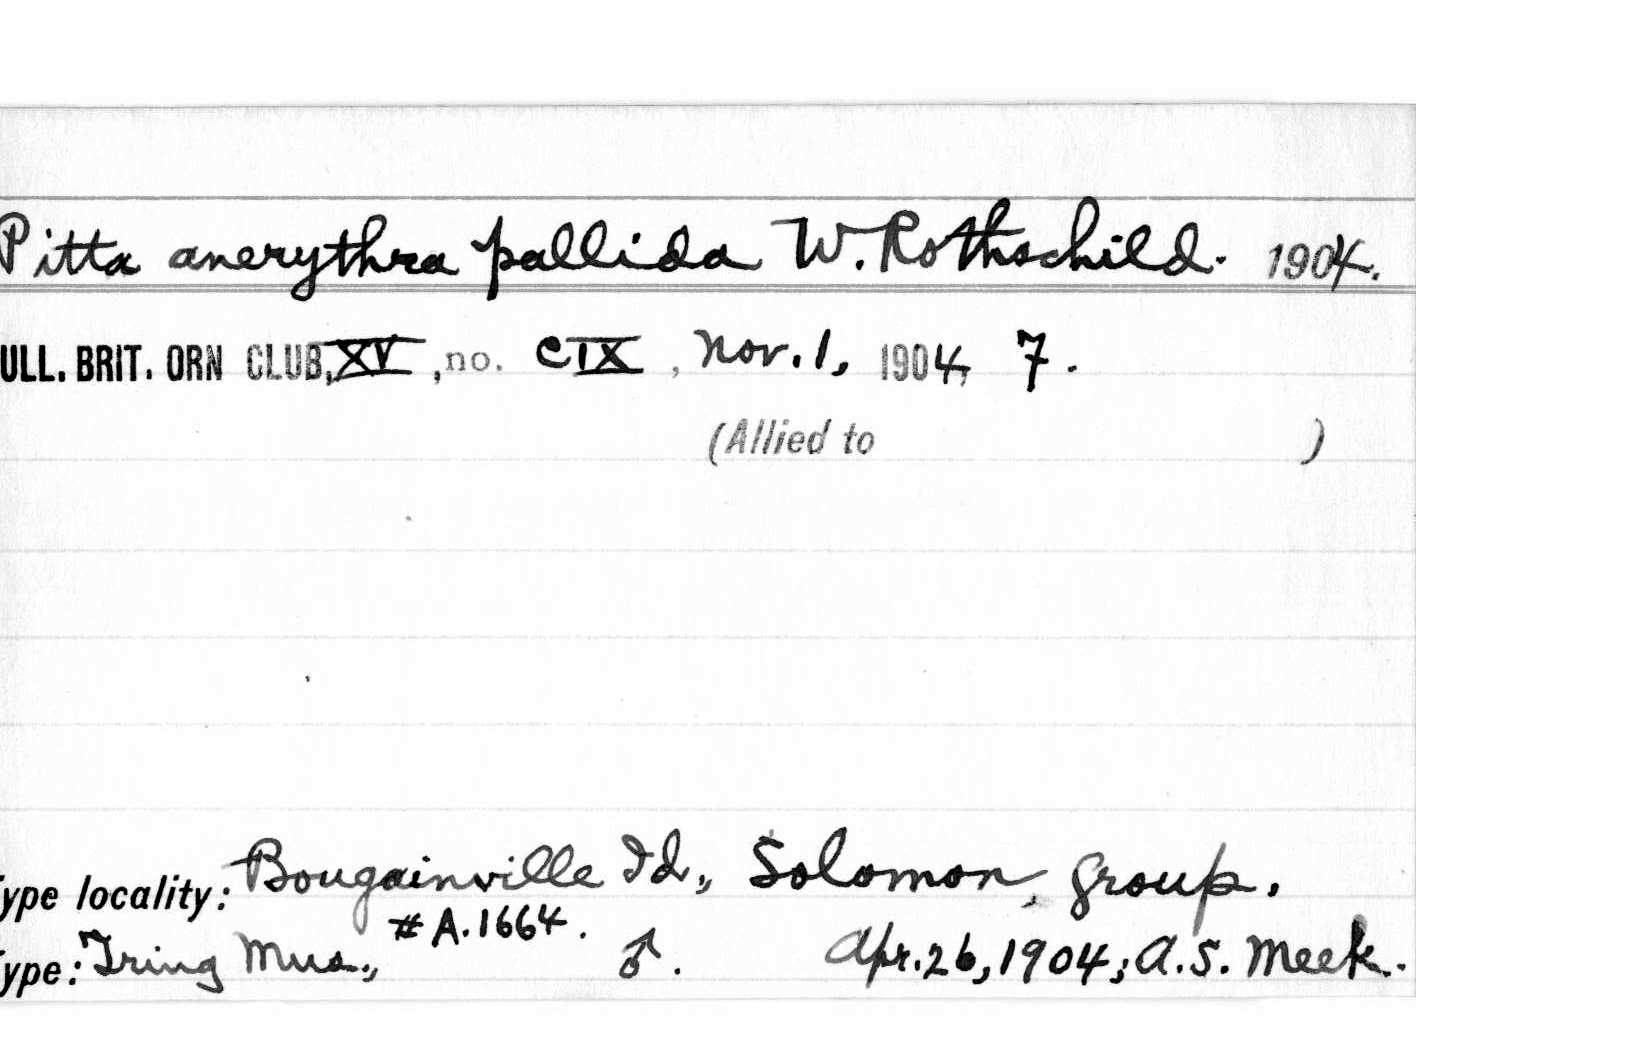 Pitta anerythra pallida W. Rothschild. 1904.
ULL. BRIT. ORN CLUB, XV, no. CIX, Nov. 1, 1904, 7.
(Allied to )
ype locality: Bougainville Id., Solomon group.
#A.1664.
ype: Tring Mus., ♂. Apr. 26, 1904; A.S. Meek.